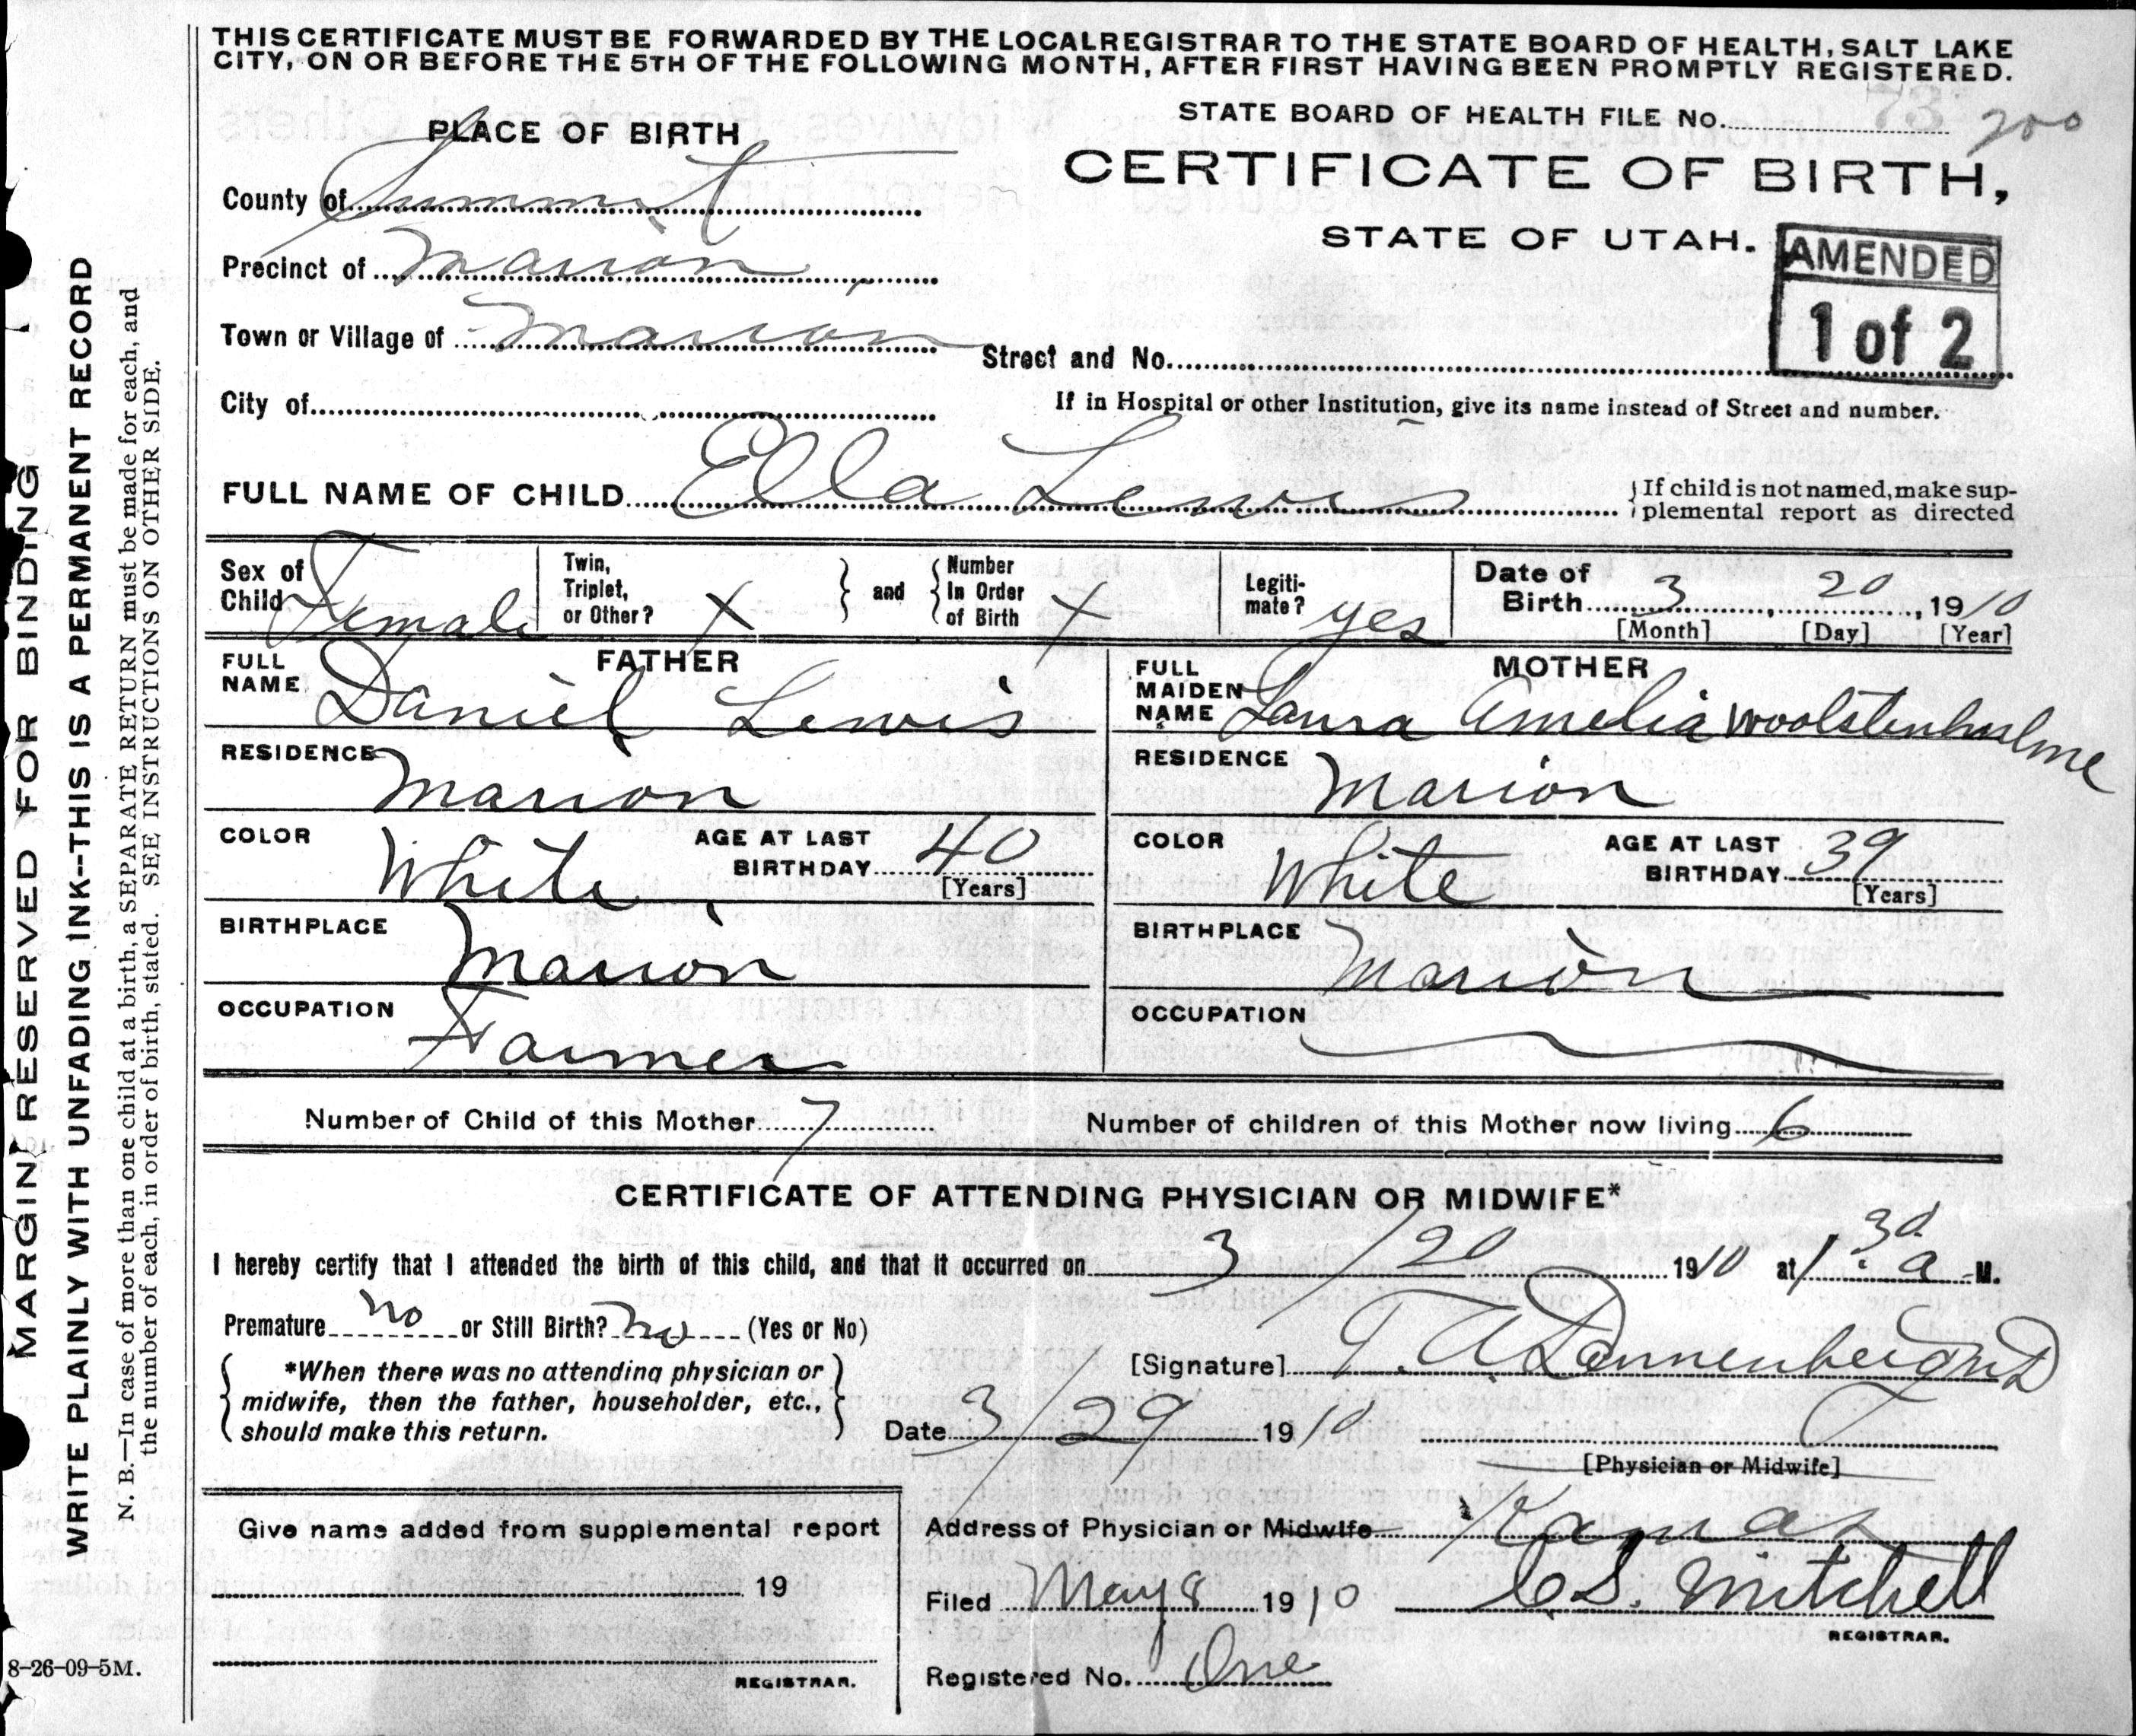 THIS CERTIFICATE MUST BE FORWARDED BY THE LOCAL REGISTRAR TO THE STATE BOARD OF HEALTH, SALT LAKE
CITY, ON OR BEFORE THE 5TH OF THE FOLLOWING MONTH, AFTER FIRST HAVING BEEN PROMPTLY REGISTERED.
STATE BOARD OF HEALTH FILE No. 73 200
PLACE OF BIRTH
CERTIFICATE OF BIRTH,
STATE OF UTAH.
AMENDED
1 of 2
County of Summit
Precinct of Marion
Town or Village of Marion
Street and No.
City of
If in Hospital or other Institution, give its name instead of Street and number.
FULL NAME OF CHILD Ella Lewis
If child is not named, make sup-
plemental report as directed
Sex of Child Female
Twin, Triplet, or Other? X
and
Number In Order of Birth X
Legiti-mate? yes
Date of Birth 3, 20, 1910
[Month] [Day] [Year]
FATHER
FULL NAME Daniel Lewis
RESIDENCE Marion
COLOR White AGE AT LAST BIRTHDAY 40
[Years]
BIRTHPLACE Marion
OCCUPATION Farmer
MOTHER
FULL MAIDEN NAME Laura Amelia Woolstenhulme
RESIDENCE Marion
COLOR White AGE AT LAST BIRTHDAY 39
[Years]
BIRTHPLACE Marion
OCCUPATION
Number of Child of this Mother 7
Number of children of this Mother now living 6
CERTIFICATE OF ATTENDING PHYSICIAN OR MIDWIFE*
I hereby certify that I attended the birth of this child, and that it occurred on 3/20 1910 at 1:30 a M.
Premature no or Still Birth? no (Yes or No)
*When there was no attending physician or
midwife, then the father, householder, etc.,
should make this return.
[Signature] T. A. Dannenberg MD
Date 3/29 1910
[Physician or Midwife]
Address of Physician or Midwife Kamas
Give name added from supplemental report
19
REGISTRAR.
Filed May 8 1910 C S. Mitchell
REGISTRAR.
Registered No. One
8-26-09-5M.
MARGIN RESERVED FOR BINDING
WRITE PLAINLY WITH UNFADING INK--THIS IS A PERMANENT RECORD
N. B.—In case of more than one child at a birth, a SEPARATE RETURN must be made for each, and
the number of each, in order of birth, stated. SEE INSTRUCTIONS ON OTHER SIDE.